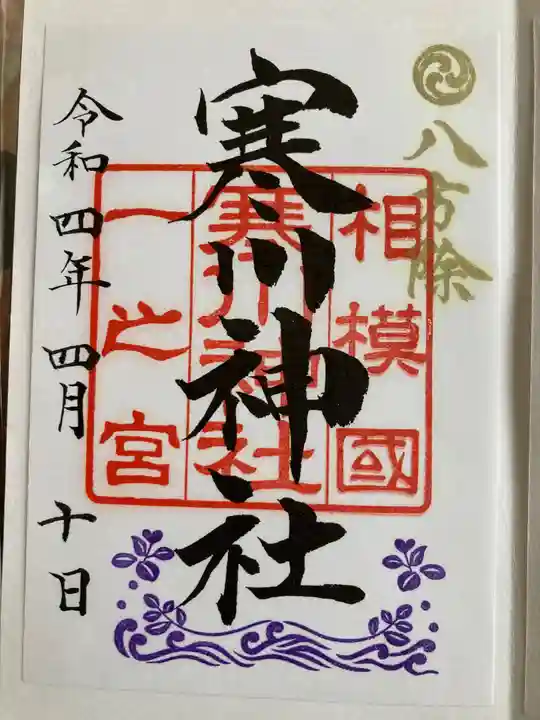 八方除
相模國
寒川神社
一之宮
寒川神社
令和四年四月十日